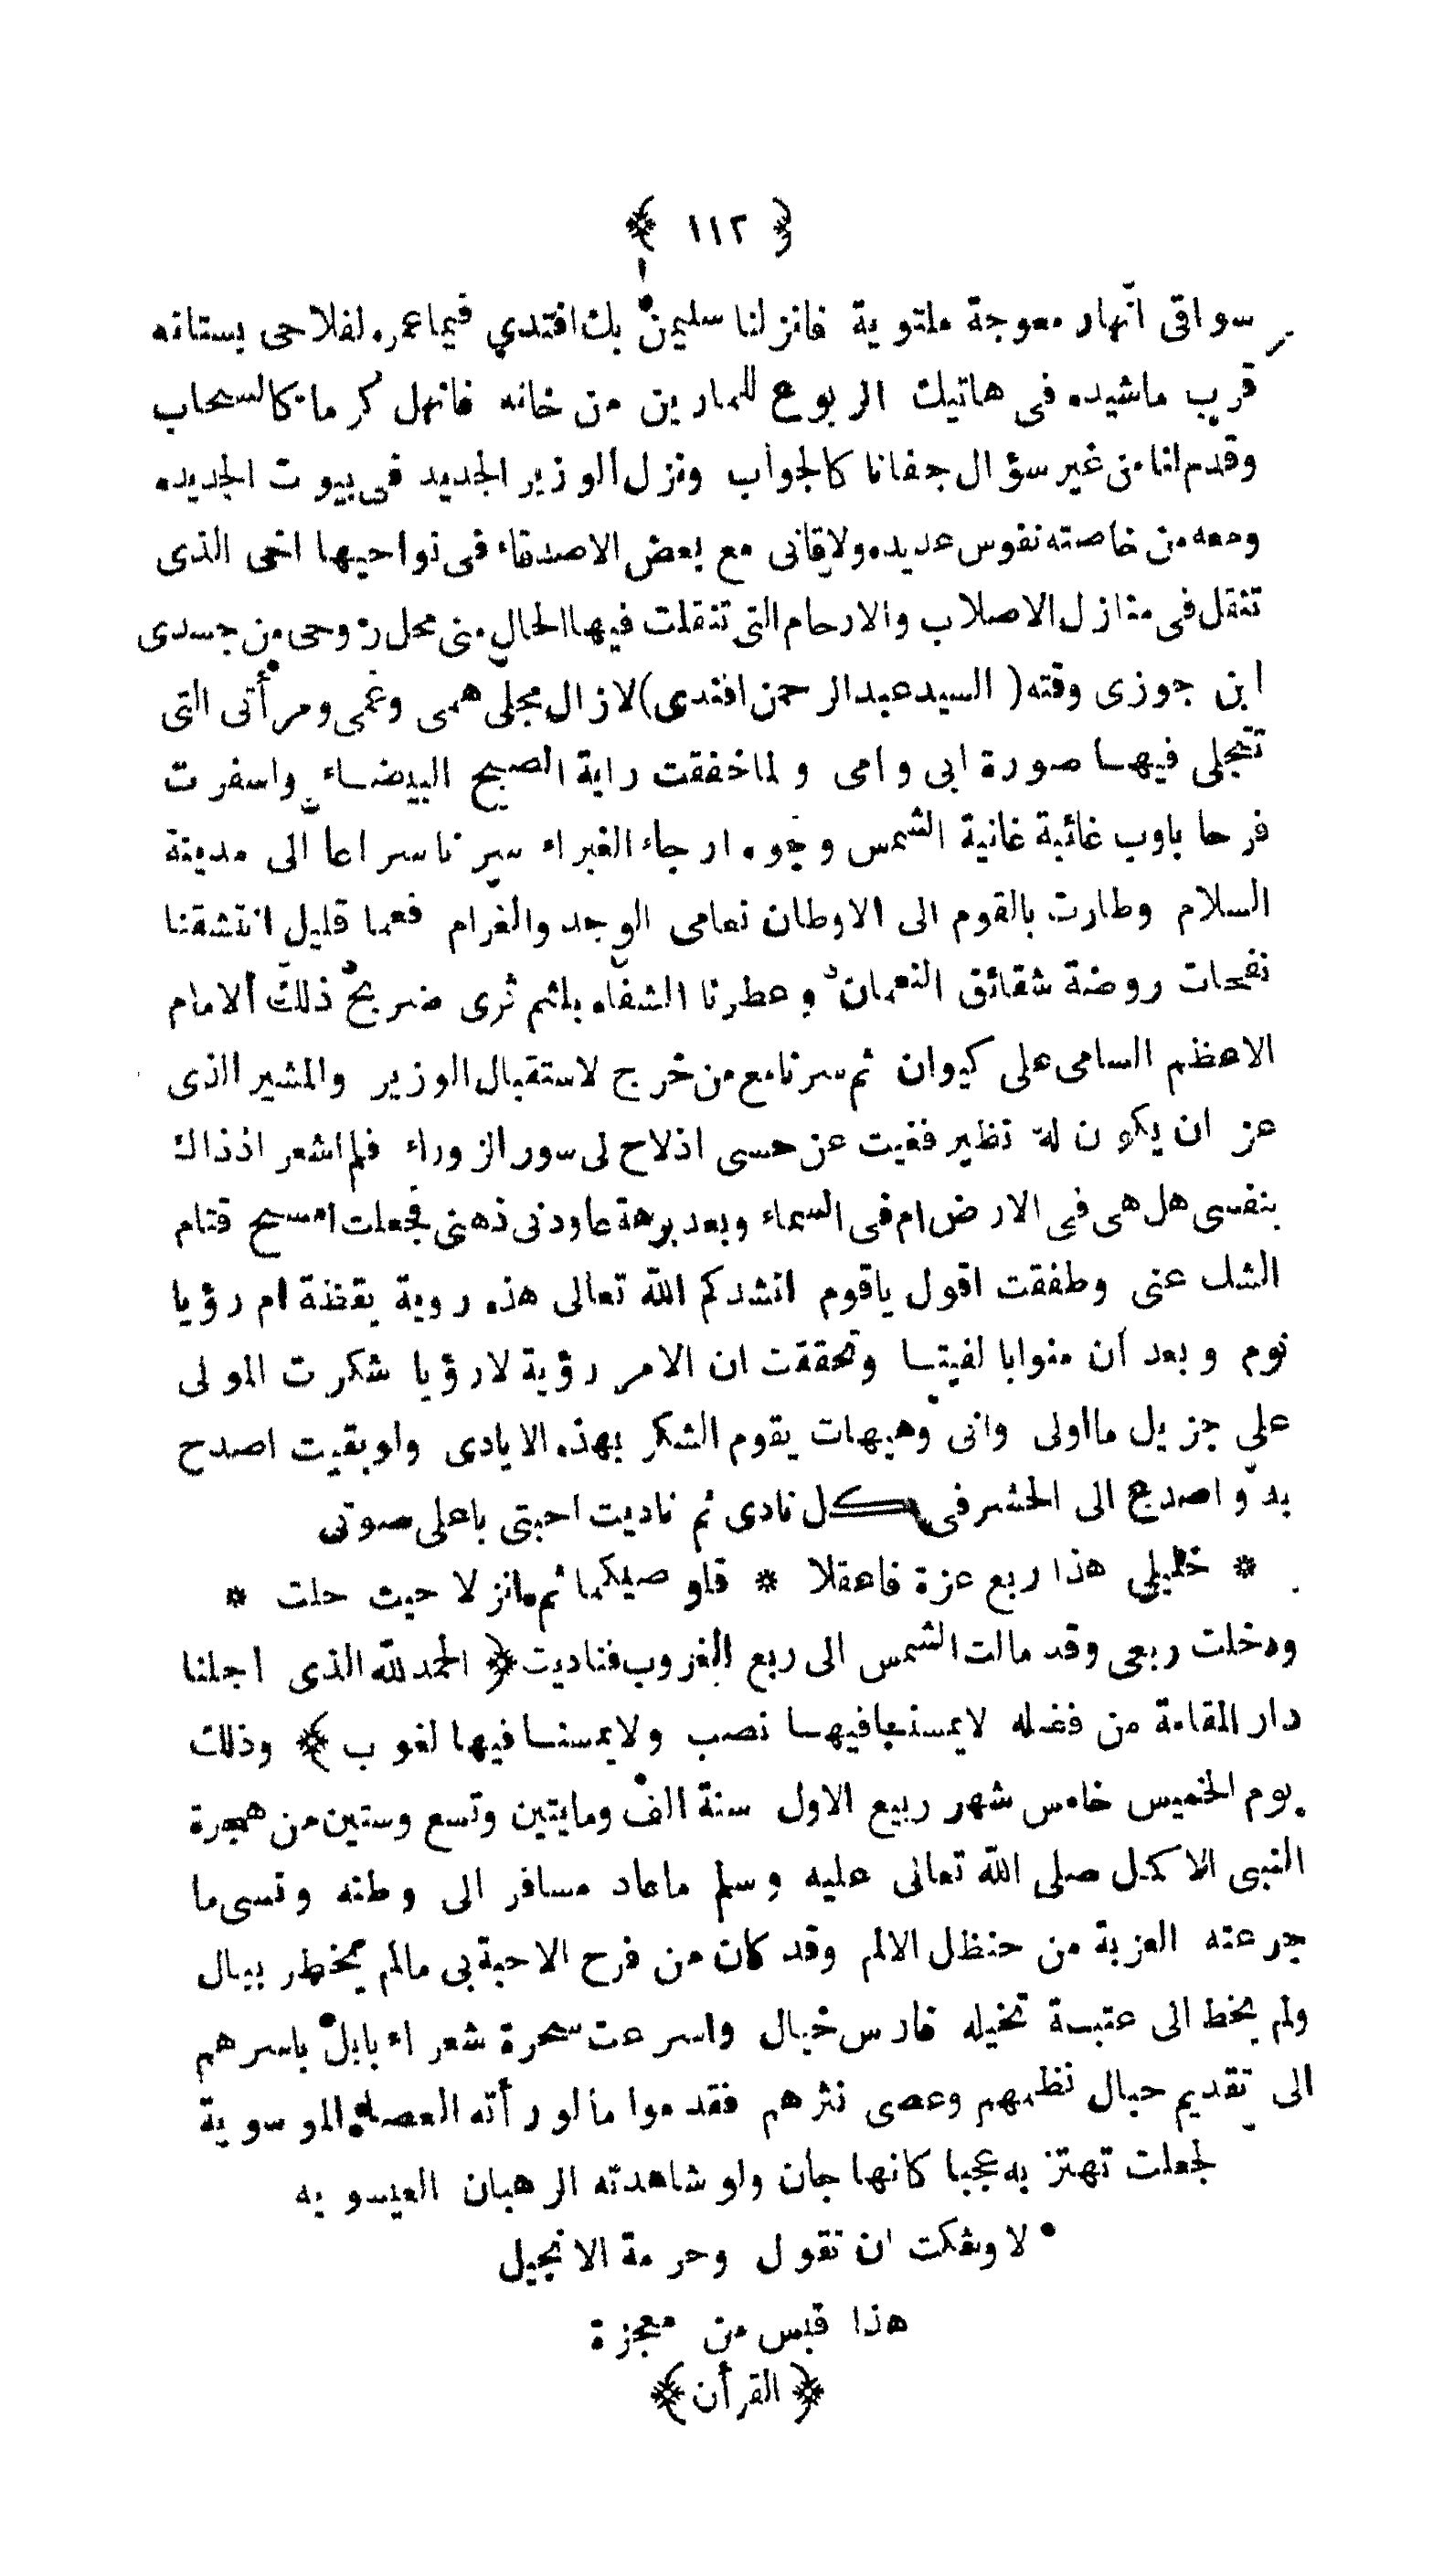 ﴿ ١١٢ ﴾
سواقى انهار معوجة ملتوية فانزلنا سليمن بك افندي فيما عمره لفلاحى بستانه
قرب ماشيده فى هاتيك الربوع للمارين من خانه فانهل كرما كالسحاب
وقدم لنا من غير سؤال جفانا كالجواب ونزل الوزير الجديد فى بيوت الجديده
ومعه من خاصته نفوس عديده ولاقانى مع بعض الاصدقاء فى نواحيها اخى الذى
تنقل فى منازل الاصلاب والارحام التى تنقلت فيها الحال منى محل روحى من جسدى
ابن جوزى وقته ( السيد عبد الرحمن افندى ) لازال مجلى همى وغمى ومرأتى التى
تتجلى فيهـا صورة ابى وامى ولما خفقت راية الصبح البيضـاء واسفرت
فرحا باوب غائبة غانية الشمس وجوه ارجاء الغبراء سرنا سراعا الى مدينة
السلام وطارت بالقوم الى الاوطان نعامى الوجد والغرام فعما قليل انتشقنا
نفحات روضة شقائق النعمان وعطرنا الشفاه بلثم ثرى ضريح ذلك الامام
الاعظم السامى على كيوان ثم سرنا مع من خرج لاستقبال الوزير والمشير الذى
عز ان يكون له نظير فغبت عن حسى اذ لاح لى سور الزوراء فلم اشعر اذ ذاك
بنفسى هل هى فى الارض ام فى السماء وبعد برهة عاودنى ذهنى فجعلت امسح قتام
الشك عنى وطفقت اقول ياقوم انشدكم الله تعالى هذه روية يقظة ام رؤيا
نوم وبعد ان منوا با لفيتـا وتحققت ان الامر رؤية لارؤيا شكرت المولى
على جزيل مااولى وانى وهيهات يقوم الشكر بهذه الايادى ولو بقيت اصدح
به واصدع الى الحشر فى كل نادى ثم ناديت احبتى باعلى صوتى
* خليلى هذا ربع عزة فاعقلا * قلوصيكما ثم انزلا حيث حلت *
ودخلت ربعى وقد مالت الشمس الى ربع الغروب فناديت ﴿ الحمد لله الذى احلنا
دار المقامة من فضله لايمسنـا فيهـا نصب ولايمسنـا فيها لغوب ﴾ وذلك
يوم الخميس خامس شهر ربيع الاول سنة الف ومايتين وتسع وستين من هجرة
النبى الاكمل صلى الله تعالى عليه وسلم ماعاد مسافر الى وطنه ونسى ما
جرعته الغربة من حنظل الالم وقد كان من فرح الاحبة بى مالم يخطر ببال
ولم يخط الى عتبة تخيله فارس خيال واسرعت سحرة شعراء بابل باسرهم
الى تقديم حبال نظمهم وعصى نثرهم فقدموا مالو رأته العصا الموسوية
لجعلت تهتز به عجبا كانها جان ولو شاهدته الرهبان العيسويه
لاوشكت ان تقول وحرمة الانجيل
هذا قبس من معجزة
﴿ القرأن ﴾